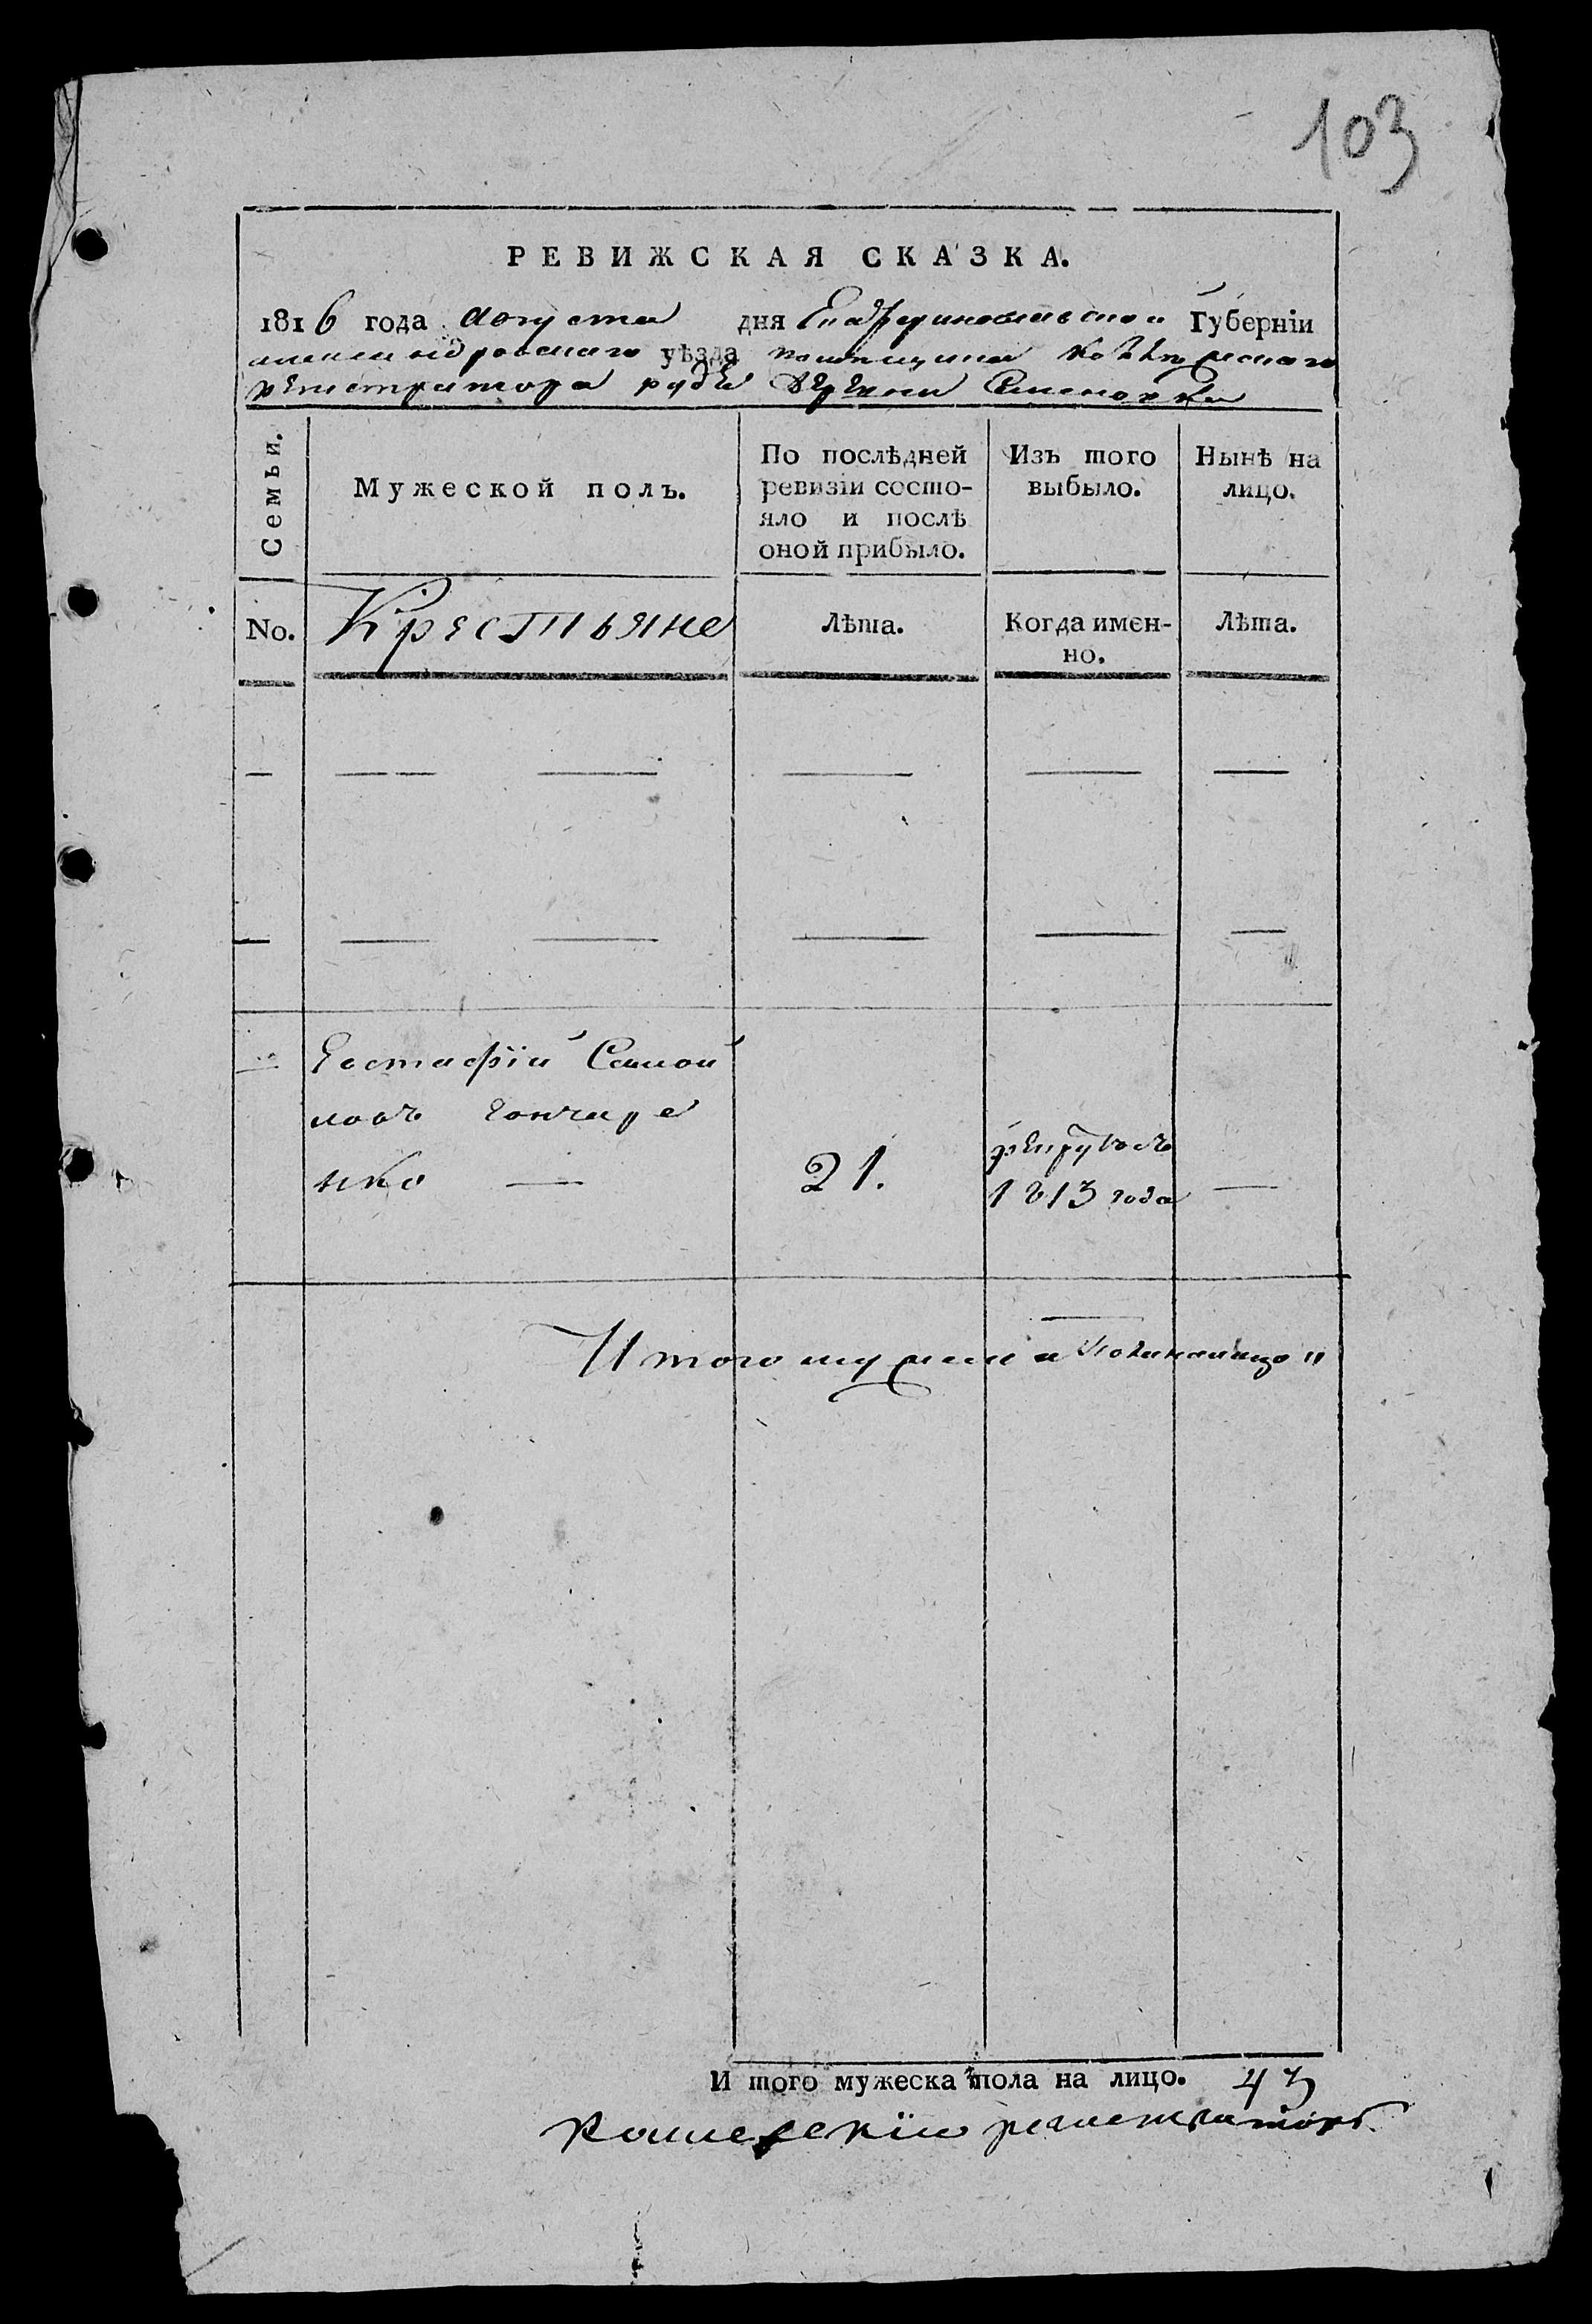 103
РЕВИЖСКАЯ СКАЗКА.
1816 года августа дня Екатеринославской Губернiи
александровскаго уѣзда помѣщика колѣжскаго
регистратора рудѣ деревни Семеновки
Семьи. Мужеской полъ. По послѣдней ревизiи состо-яло и послѣ оной прибыло. Изъ того выбыло. Нынѣ на лицо.
No. Крестьяне Лѣта. Когда имен-но. Лѣта.
— — — — — —
— — — — — —
Евстафiй Самой
ловъ Гончаре
нко — 21. рекрутъ 1813 года —
Итого мужеска пола на лицо "
И того мужеска пола на лицо. 43
Колежскiй регистраторъ